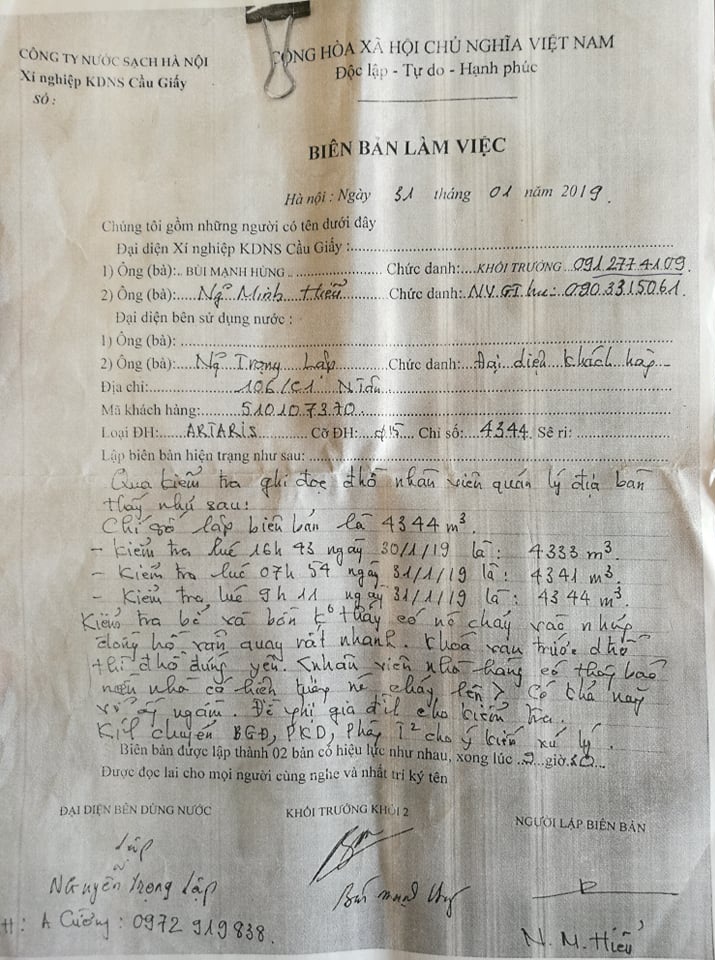 CÔNG TY NƯỚC SẠCH HÀ NỘI
Xí nghiệp KDNS Cầu Giấy
SỐ:
CỘNG HÒA XÃ HỘI CHỦ NGHĨA VIỆT NAM
Độc lập - Tự do - Hạnh phúc
BIÊN BẢN LÀM VIỆC
Hà nội : Ngày 31 tháng 01 năm 2019.
Chúng tôi gồm những người có tên dưới đây
Đại diện Xí nghiệp KDNS Cầu Giấy :
1) Ông (bà):.. BÙI MẠNH HÙNG .. Chức danh:....KHỐI TRƯỞNG ...0912774109
2) Ông (bà):.....Ng~ Minh Hiếu Chức danh:..N.V.GT 0903315061.
Đại diện bên sử dụng nước :
1) Ông (bà):
2) Ông (bà):.....Ng~ Trọng Lập Chức danh:....Đại diện khách hàng
Địa chỉ: 106/C1
Mã khách hàng: 510107370
Loại ĐH: ARTARIS Cỡ ĐH: Ø15 Chỉ số: 4344 Sê ri:
Lập biên bản hiện trạng như sau:
Qua kiểm tra ghi đọc đhồ nhân viên quản lý địa bàn
thấy như sau:
Chỉ số lập biên bản là 4344 m³.
- Kiểm tra lúc 16h 43 ngày 30/1/19 là: 4333 m³.
- Kiểm tra lúc 07h 54 ngày 31/1/19 là: 4341 m³.
- Kiểm tra lúc 9h 11 ngày 31/1/19 là: 4344 m³.
Kiểm tra bể và bồn k° thấy có nc chảy vào nhưng
đồng hồ vẫn quay rất nhanh. Khoá van trước đhồ
thì đhồ đứng yên. <nhân viên nhà hàng có thông báo
nền nhà có hiện tượng nc chảy lên> Có khả năng
vỡ ố ngầm. Đề nghị gia đìh cho kiểm tra.
Kíh chuyển BGĐ, PKD, cho ý kiến xử lý.
Biên bản được lập thành 02 bản có hiệu lực như nhau, xong lúc .9...giờ.30
Được đọc lại cho mọi người cùng nghe và nhất trí ký tên
ĐẠI DIỆN BÊN DÙNG NƯỚC KHỐI TRƯỞNG KHỐI 2 NGƯỜI LẬP BIÊN BẢN
Lập
Nguyễn Trọng Lập
Bùi Mạnh Hùng
N. M. Hiếu
H: A Cường: 0972 919838.